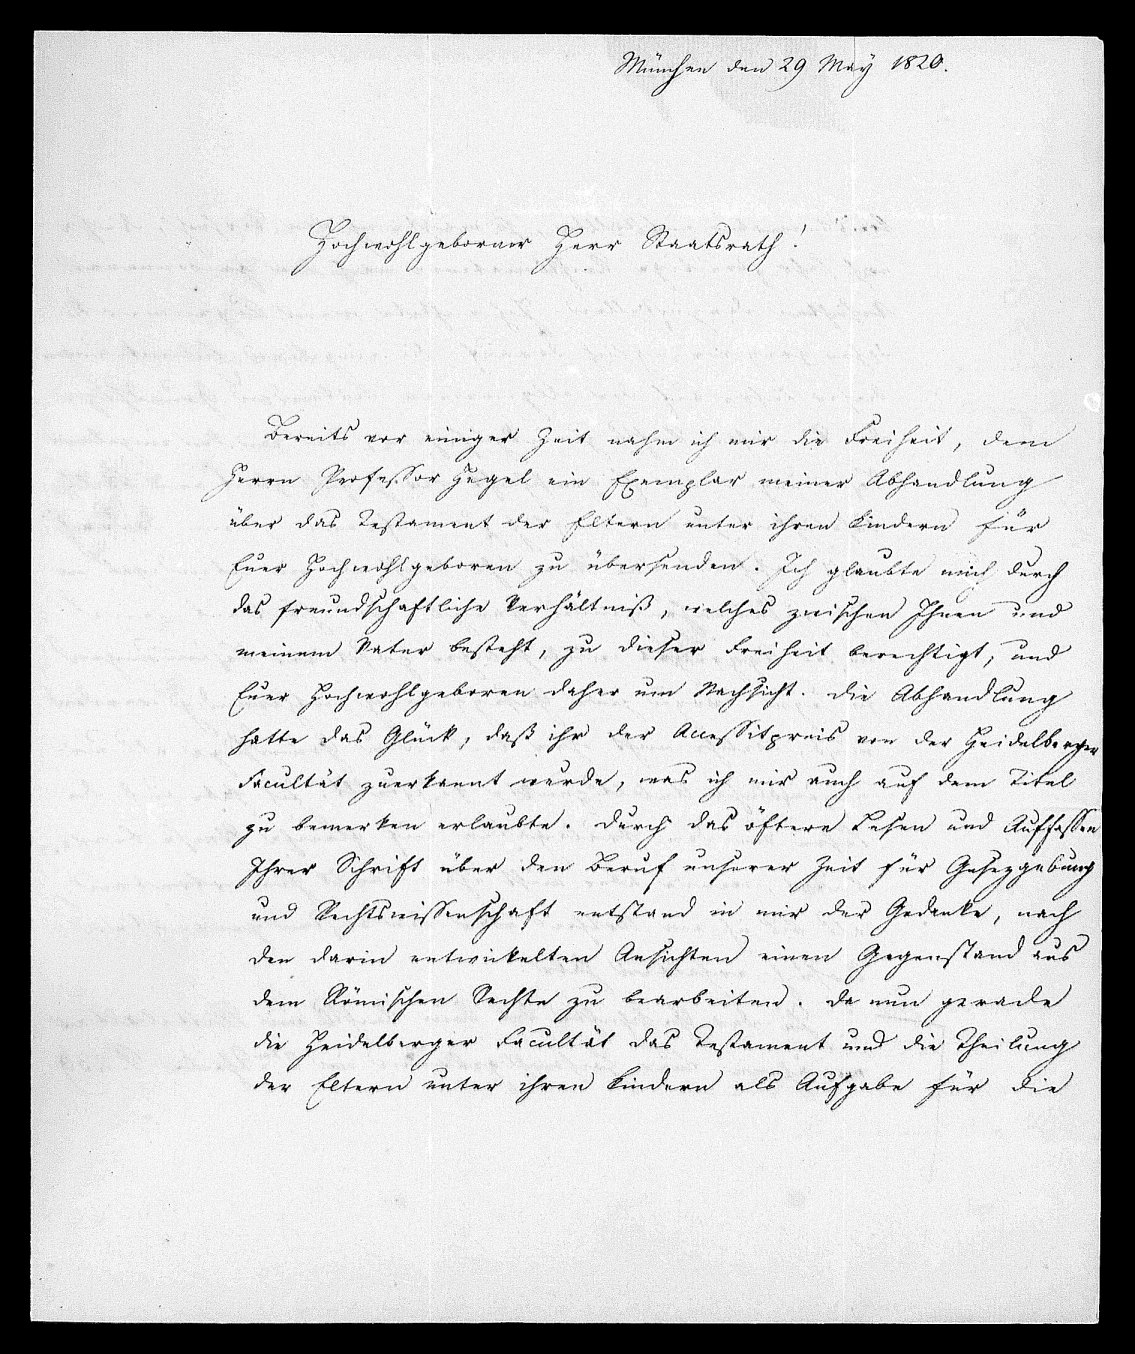 München den 29 May 1820.
Hochwohlgeborner Herr Staatsrath!
Bereits vor einiger Zeit nahm ich mir die Freiheit, dem
Herrn Professor Hegel ein Exemplar meiner Abhandlung
über das Testament der Eltern unter ihren Kindern für
Euer Hochwohlgeboren zu übersenden. Ich glaubte mich durch
das freundschaftliche Verhältniß, welches zwischen Ihnen und
meinem Vater besteht, zu dieser Freiheit berechtigt, und
Euer Hochwohlgeboren daher um Nachsicht. Die Abhandlung
hatte das Glück, daß ihr der Accessitpreis von der Heidelberger
Facultät zuerkannt wurde, was ich mir auch auf dem Titel
zu bemerken erlaubte. Durch das öftere Lesen und Auffassen
Ihrer Schrift über den Beruf unserer Zeit für Gesezgebung
und Rechtswissenschaft entstand in mir der Gedanke, nach
den darin entwickelten Ansichten einen Gegenstand aus
dem Römischen Rechte zu bearbeiten. Da nun gerade
die Heidelberger Facultät das Testament und die Theilung
der Eltern unter ihren Kindern als Aufgabe für die